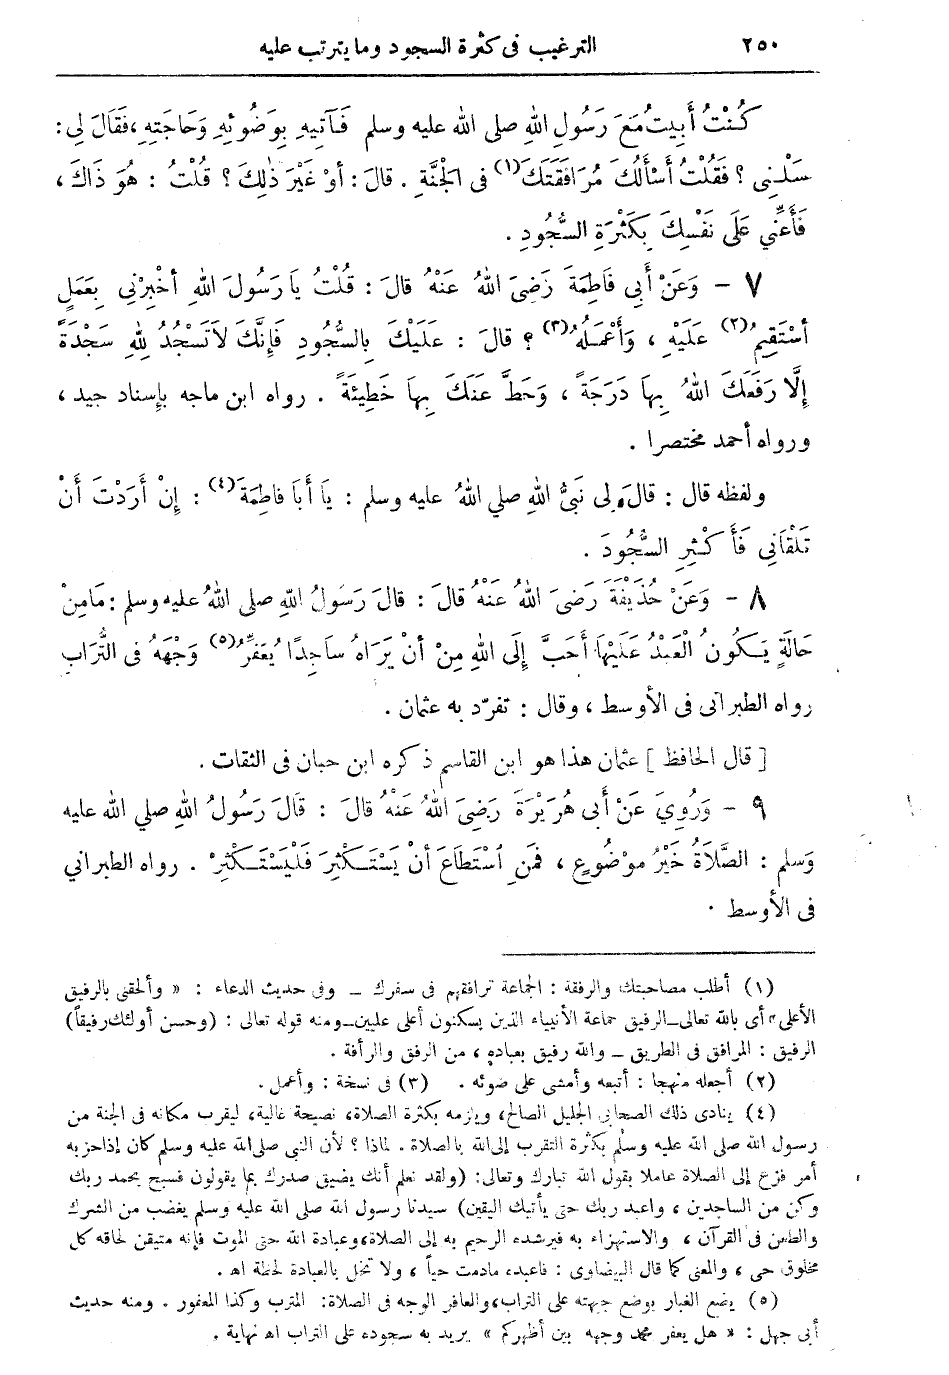 ٢٥٠ الترغيب فى كثرة السجود وما يترتب عليه
كُنْتُ أَبِيتُ مَعَ رَسُولِ اللهِ صلى الله عليه وسلم فَآتِيهِ بِوَضُوئِهِ وَحَاجَتِهِ، فَقَالَ لِي:
سَلْنِي؟ فَقُلْتُ أَسْأَلُكَ مُرَافَقَتَكَ(١) فى الْجَنَّةِ. قالَ: أَوْ غَيْرَ ذٰلِكَ؟ قُلْتُ: هُوَ ذَاكَ،
فَأَعِنِّي عَلَى نَفْسِكَ بِكَثْرَةِ السُّجُودِ.
٧ - وَعَنْ أَبِي فَاطِمَةَ رَضِيَ اللهُ عَنْهُ قالَ: قُلْتُ يَا رَسُولَ اللهِ أَخْبِرْنِي بِعَمَلٍ
أَسْتَقِيمُ(٢) عَلَيْهِ، وَأَعْمَلُهُ(٣)؟ قالَ: عَلَيْكَ بِالسُّجُودِ فَإِنَّكَ لَا تَسْجُدُ لِلهِ سَجْدَةً
إِلَّا رَفَعَكَ اللهُ بِهَا دَرَجَةً، وَحَطَّ عَنَكَ بِهَا خَطِيئَةً. رواه ابن ماجه بإسناد جيد،
ورواه أحمد مختصرا.
ولفظه قال: قالَ لِى نَبِيُّ اللهِ صلي اللهُ عليه وسلم: يَا أَبَا فَاطِمَةَ(٤): إِنْ أَرَدْتَ أَنْ
تَلْقَانِي فَأَكْثِرِ السُّجُودَ.
٨ - وَعَنْ حُذَيْفَةَ رَضِيَ اللهُ عَنْهُ قالَ: قالَ رَسُولُ اللهِ صلى اللهُ عليه وسلم: مَا مِنْ
حَالَةٍ يَكُونُ الْعَبْدُ عَلَيْهَا أَحَبَّ إِلَى اللهِ مِنْ أَنْ يَرَاهُ سَاجِدًا يُعَفِّرُ(٥) وَجْهَهُ فِى التُّرَابِ
رواه الطبرانى فى الأوسط، وقال: تفرّد به عثمان.
[قال الحافظ] عثمان هذا هو ابن القاسم ذكره ابن حبان فى الثقات.
٩ - وَرُوِيَ عَنْ أَبِي هُرَيْرَةَ رَضِيَ اللهُ عَنْهُ قالَ: قَالَ رَسُولُ اللهِ صلي الله عليه
وَسلم: الصَّلَاةُ خَيْرُ مَوْضُوعٍ، فَمَنِ اسْتَطَاعَ أَنْ يَسْتَكْثِرَ فَلْيَسْتَكْثِرْ. رواه الطبراني
فى الأوسط.
(١) أطلب مصاحبتك والرفقة: الجماعة ترافقهم فى سفرك ــ وفى حديث الدعاء: « وألحقنى بالرفيق
الأعلى» أى بالله تعالى ــ الرفيق جماعة الأنبياء الذين يسكنون أعلى عليين ــ ومنه قوله تعالى: (وحسن أولئك رفيقاً)
الرفيق: المرافق فى الطريق ــ والله رفيق بعباده، من الرفق والرأفة.
(٢) أجعله منهجا: أتبعه وأمشى على ضوئه. (٣) فى نسخة: وأعمل.
(٤) ينادى ذلك الصحابى الجليل الصالح، ويلزمه بكثرة الصلاة، نصيحة غالية، ليقرب مكانه فى الجنة من
رسول الله صلى الله عليه وسلم بكثرة التقرب إلى الله بالصلاة. لماذا؟ لأن النبى صلى الله عليه وسلم كان إذا حزبه
أمر فزع إلى الصلاة عاملا بقول الله تبارك وتعالى: (ولقد نعلم أنك يضيق صدرك بما يقولون فسبح بحمد ربك
وكن من الساجدين، واعبد ربك حتى يأتيك اليقين) سيدنا رسول الله صلى الله عليه وسلم يغضب من الشرك
والطعن فى القرآن، والاستهزاء به فيرشده الرحيم به إلى الصلاة، وعبادة الله حتى الموت فإنه متيقن لحاقه كل
مخلوق حى، والمعنى كما قال البيضاوى: فاعبده مادمت حياً، ولا تخل بالعبادة لحظة اهـ.
(٥) يضع الغبار بوضع جبهته على التراب، والعافر الوجه فى الصلاة: المترب وكذا المعفور. ومنه حديث
أبى جهل: « هل يعفر محمد وجهه بين أظهركم » يريد به سجوده على التراب اهـ نهاية.